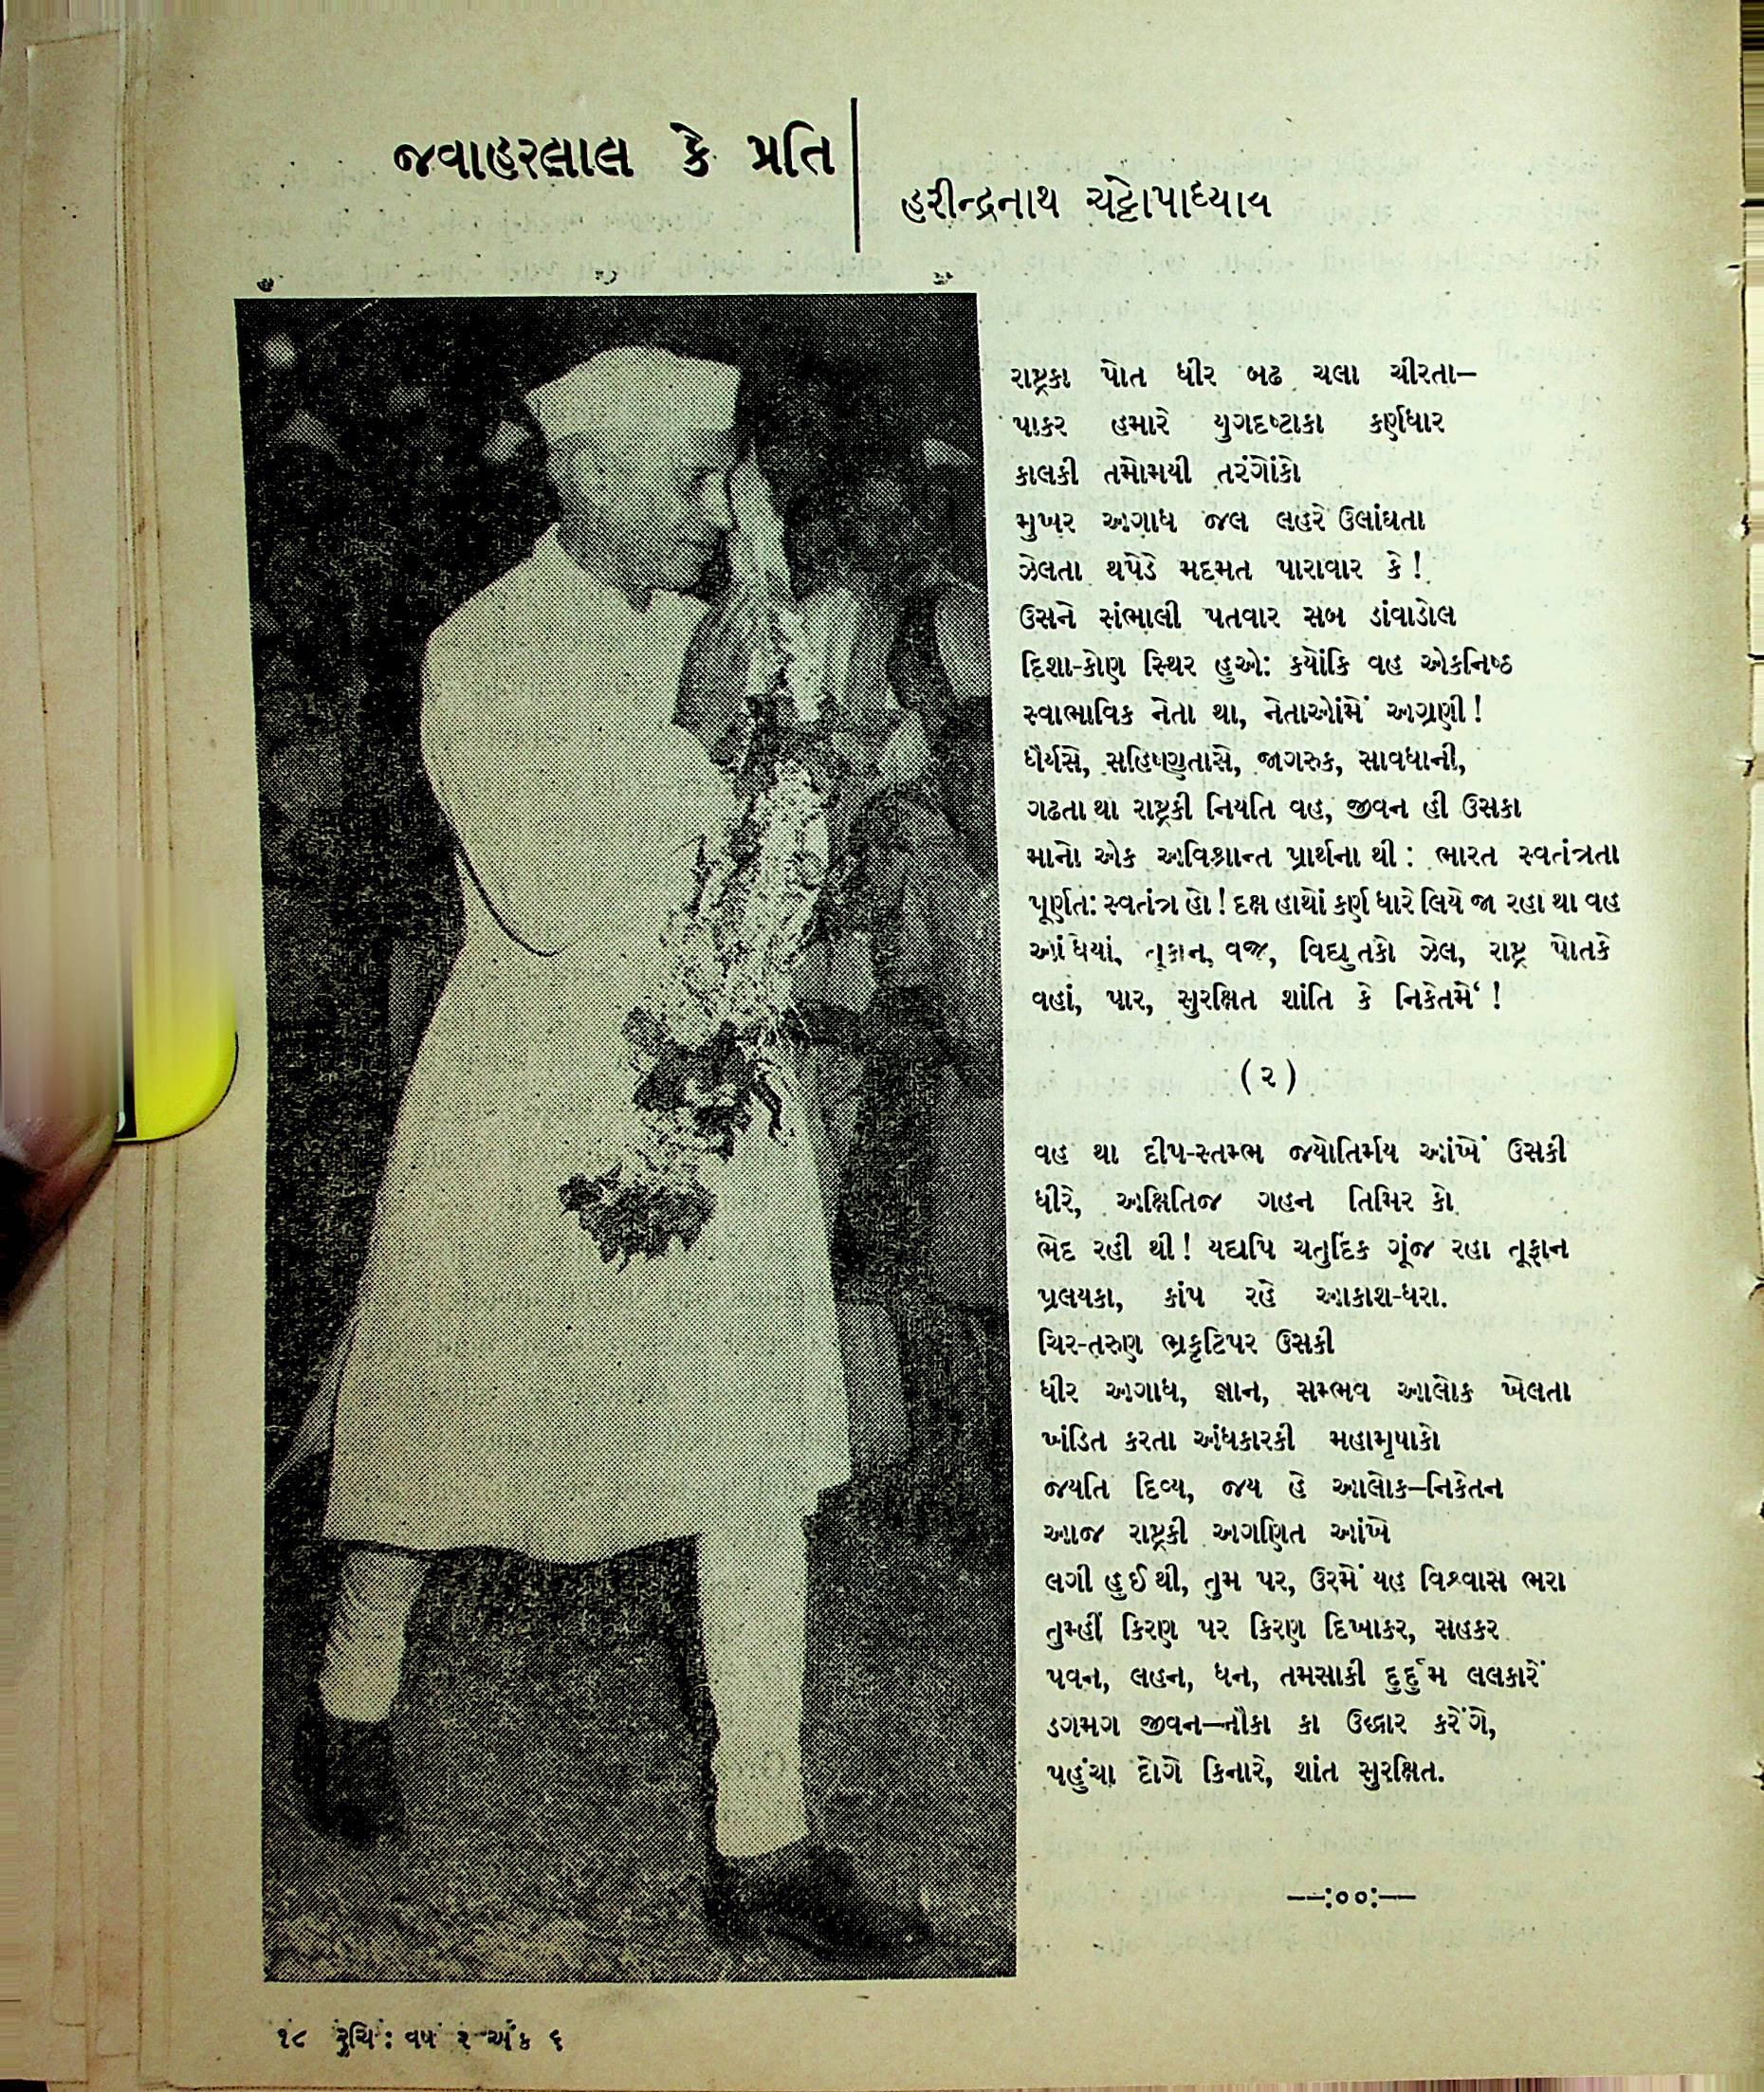 જવાહરલાલ કે પ્રતિ
હરીન્દ્રનાથ ચટ્ટોપાધ્યાય
રાષ્ટ્રકા પોત ધીર બઢ ચલા ચીરતા–
પાકર હમારે યુગદષ્ટાકા કર્ણધાર
કાલકી તમોમયી તરંગોંકો
મુખર અગાધ જલ લહરે ઉલાંઘતા
ઝેલતા થપેડે મદમત પારાવાર કે!
ઉસને સંભાલી પતવાર સબ ડાંવાડોલ
દિશા-કોણ સ્થિર હુએ: કયોંકિ વહ એકનિષ્ઠ
સ્વાભાવિક નેતા થા, નેતાઓંમેં અગ્રણી!
ધૈર્યસે, સહિષ્ણુતાસે, જાગરુક, સાવધાની,
ગઢતા થા રાષ્ટ્રકી નિયતિ વહ, જીવન હી ઉસકા
માનો એક અવિશ્રાન્ત પ્રાર્થના થી : ભારત સ્વતંત્રતા
પૂર્ણત: સ્વતંત્ર હો! દક્ષ હાથોં કર્ણ ધારે લિયે જા રહા થા વહ
આંધિયાં, તૂફાન, વજ, વિદ્યુતકો ઝેલ, રાષ્ટ્ર પોતકે
વહાં, પાર, સુરક્ષિત શાંતિ કે નિકેતમેં!
(૨)
વહ થા દીપ-સ્તમ્ભ જ્યોતિર્મય આંખેં ઉસકી
ધીરે, અક્ષિતિજ ગહન તિમિર કો
ભેદ રહી થી! યદ્યપિ ચતુર્દિક ગૂંજ રહા તૂફાન
પ્રલયકા, કાંપ રહે આકાશ-ધરા.
ચિર-તરુણ ભ્રકૃટિપર ઉસકી
ધીર અગાધ, જ્ઞાન, સમ્ભવ આલોક ખેલતા
ખંડિત કરતા અંધકારકી મહામૃષાકો
જયતિ દિવ્ય, જય હે આલોક–નિકેતન
આજ રાષ્ટ્રકી અગણિત આંખે
લગી હુઈ થી, તુમ પર, ઉરમેં યહ વિશ્વાસ ભરા
તુમ્હીં કિરણ પર કિરણ દિખાકર, સહકર
પવન, લહન, ધન, તમસાકી દુર્દુમ લલકારેં
ડગમગ જીવન–નૌકા કા ઉદ્ધાર કરેંગે,
પહુંચા દોગે કિનારે, શાંત સુરક્ષિત.
—:૦૦:—
૧૮ રુચિ: વર્ષ ૨ અંક ૬